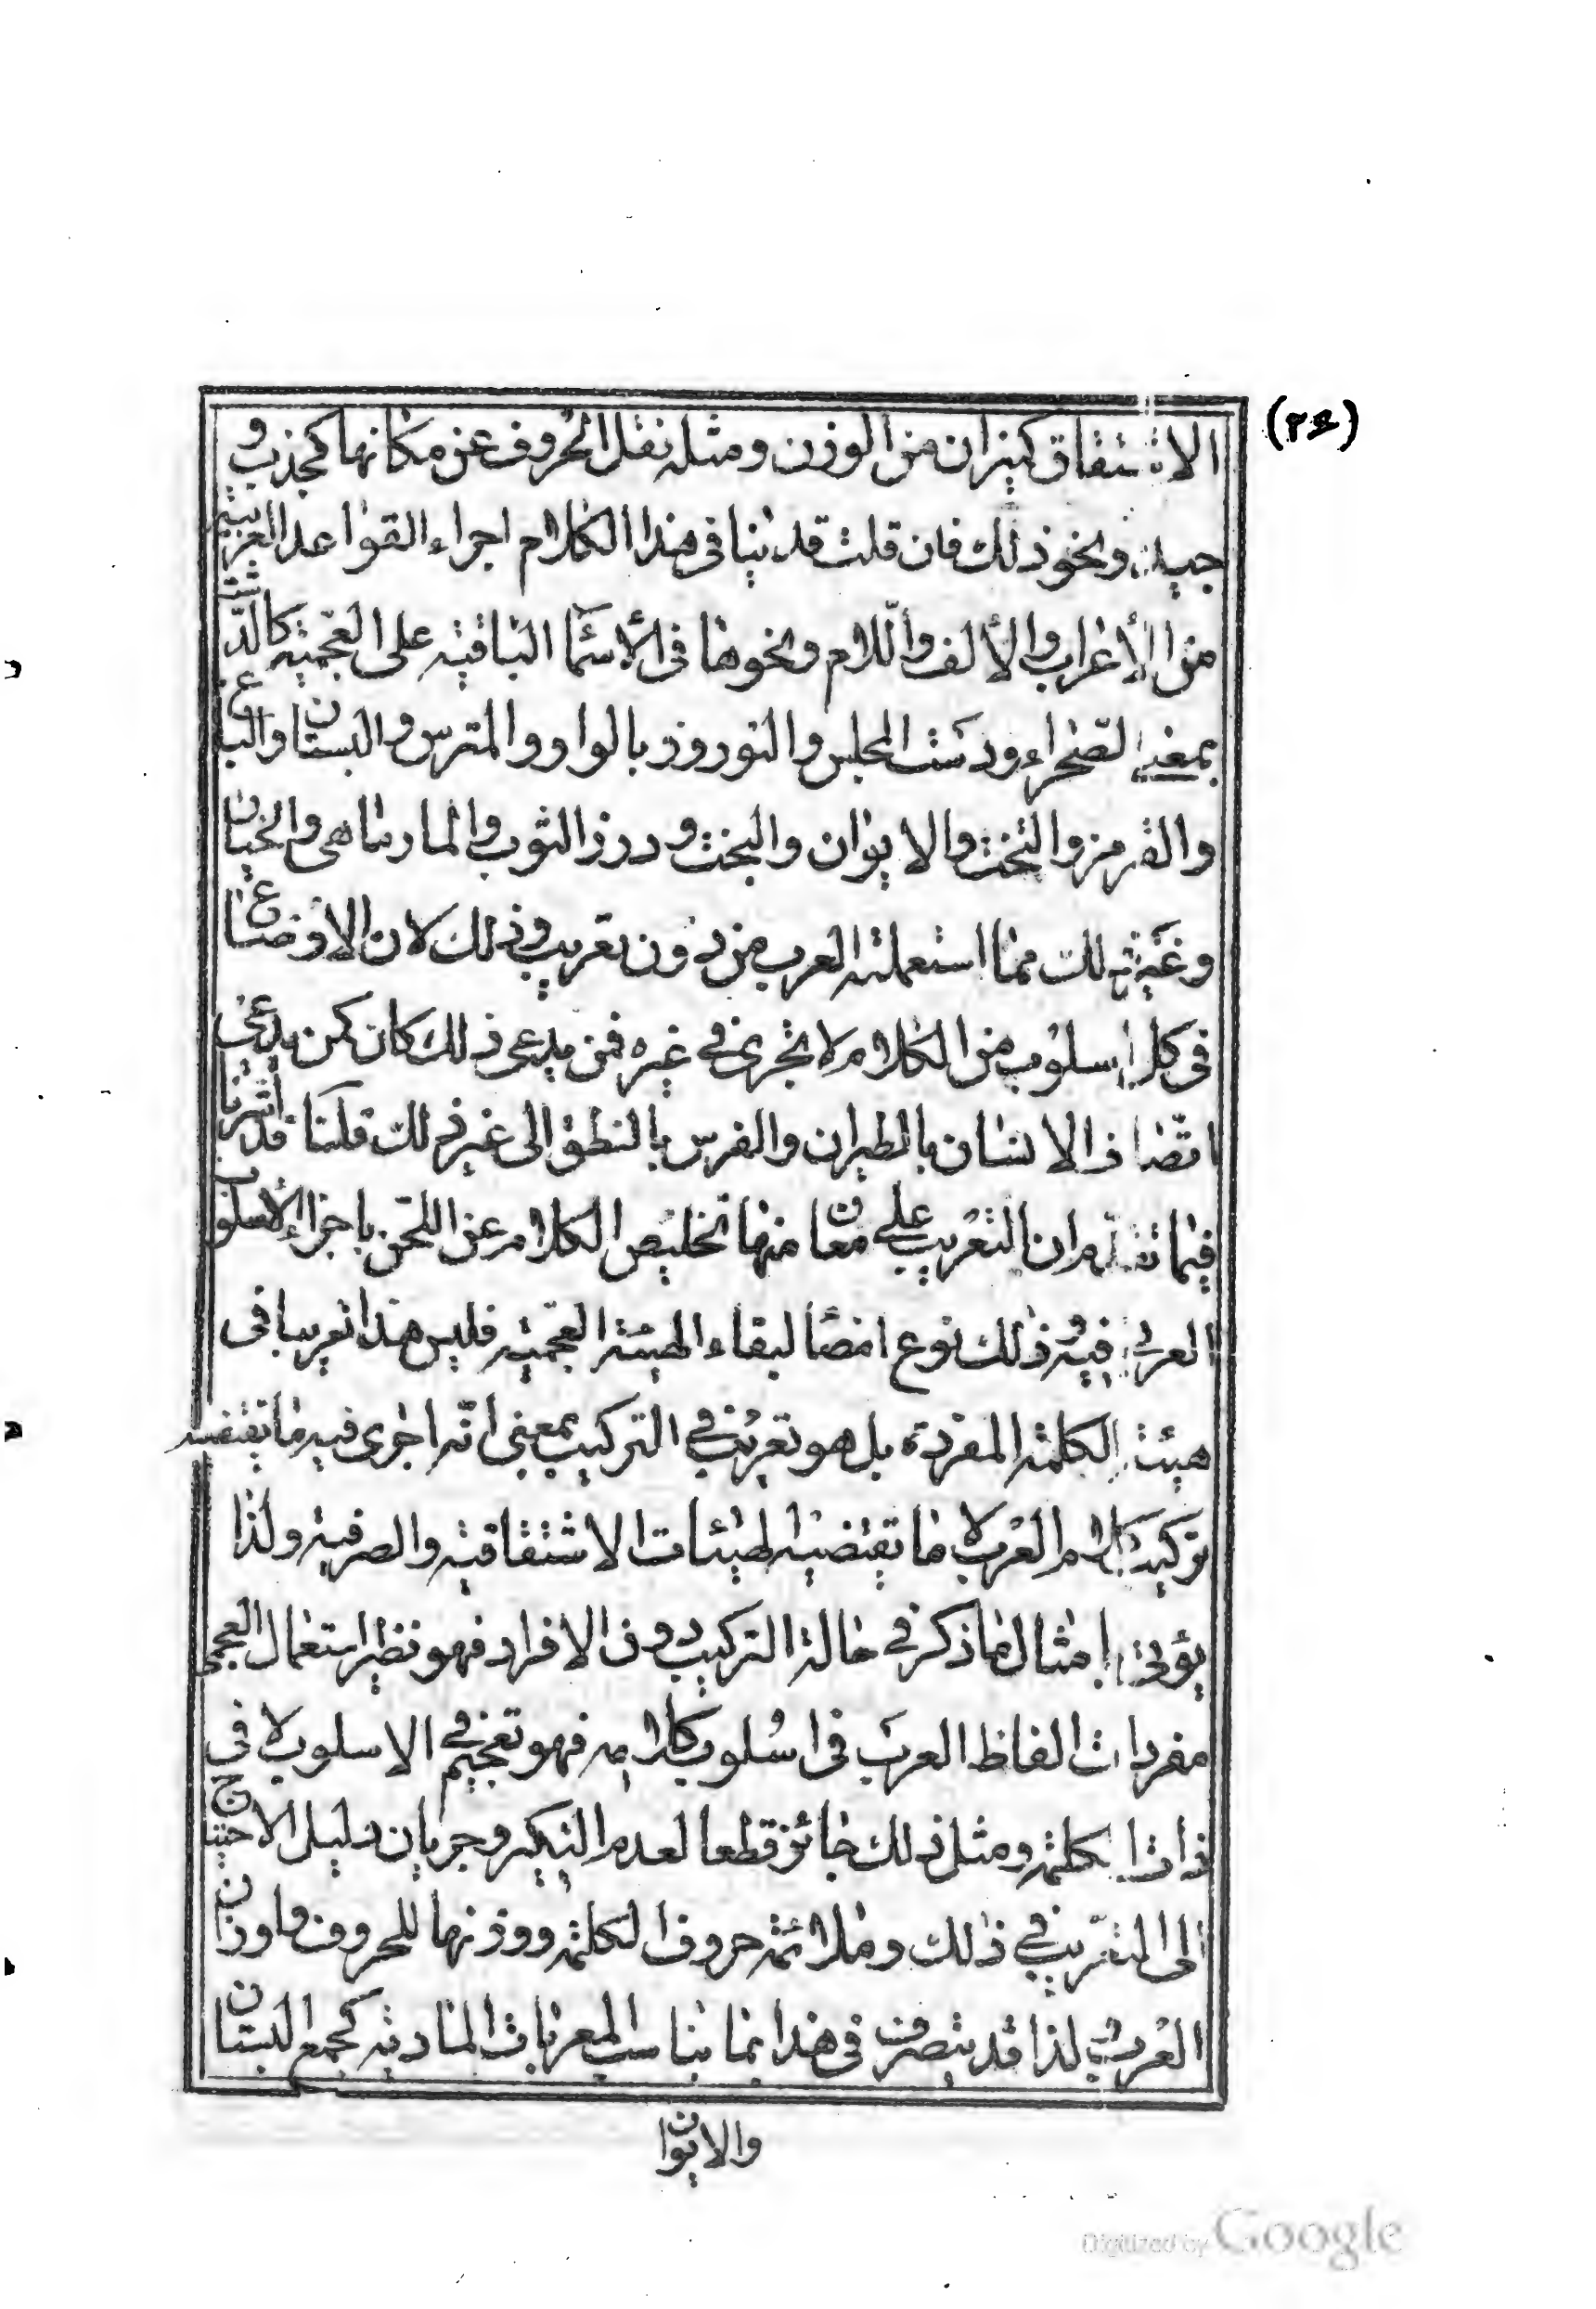 (٢٤)
الاشتقاق كميزان من الوزن ومثله نقل الحروف عن مكانها كجذب و
جبذ ونحو ذلك فان قلت قد ينافى هذا الكلام اجراء القواعد العربية
من الأعراب والألف واللام ونحوها فى الأسماء الباقية على العجمية كالدّشت
بمعنى الصّحراء ودست المجلس والنوروز بالواو والمترس والبستان والباغ
والقرمز والتخت والايوان والبخت ودرز الثوب والمارماهى والخيار
وغير ذلك مما استعملته العرب من دون تعريب وذلك لان الاوضاع
فى كل اسلوب من الكلام لا تجرى فى غيره فمن يدعى ذلك كان كمن يدعى
اتصاف الانسان بالطيران والفرس بالنطق الى غير ذلك قلنا قد اشرنا
فيما تقدم ان التعريب على معان منها تخليص الكلام عن اللحن باجراء الأسلوب
العربى فيه ذلك نوع ايضًا لبقاء الهيئة العجمية فليس هذا تعريبا فى
هيئة الكلمة المفردة بل هو تعريب فى التركيب بمعنى انّه اجرى فيه ما تقتضيه
تركيب كلام العرب لا ما تقتضيه الهيئات الاشتقاقية والصرفية ولذا
يؤتى بامثال ما ذكر فى حالة التركيب دون الافراد فهو نظير استعمال العجمى
مفردات الفاظ العرب فى اسلوب كلامه فهو تعجيم فى الاسلوب لا فى
ذات الكلمة ومثل ذلك جائز قطعا لعدم النكير وجريان دليل الاحتياج
الى التعريب فى ذلك وملائمة حروف الكلمة ووزنها للحروف واوزان
العرب ولذا قد يتصرف فى هذا بما يناسب المعربات المادية كجمع البستان
والايوان
Digitized by Google